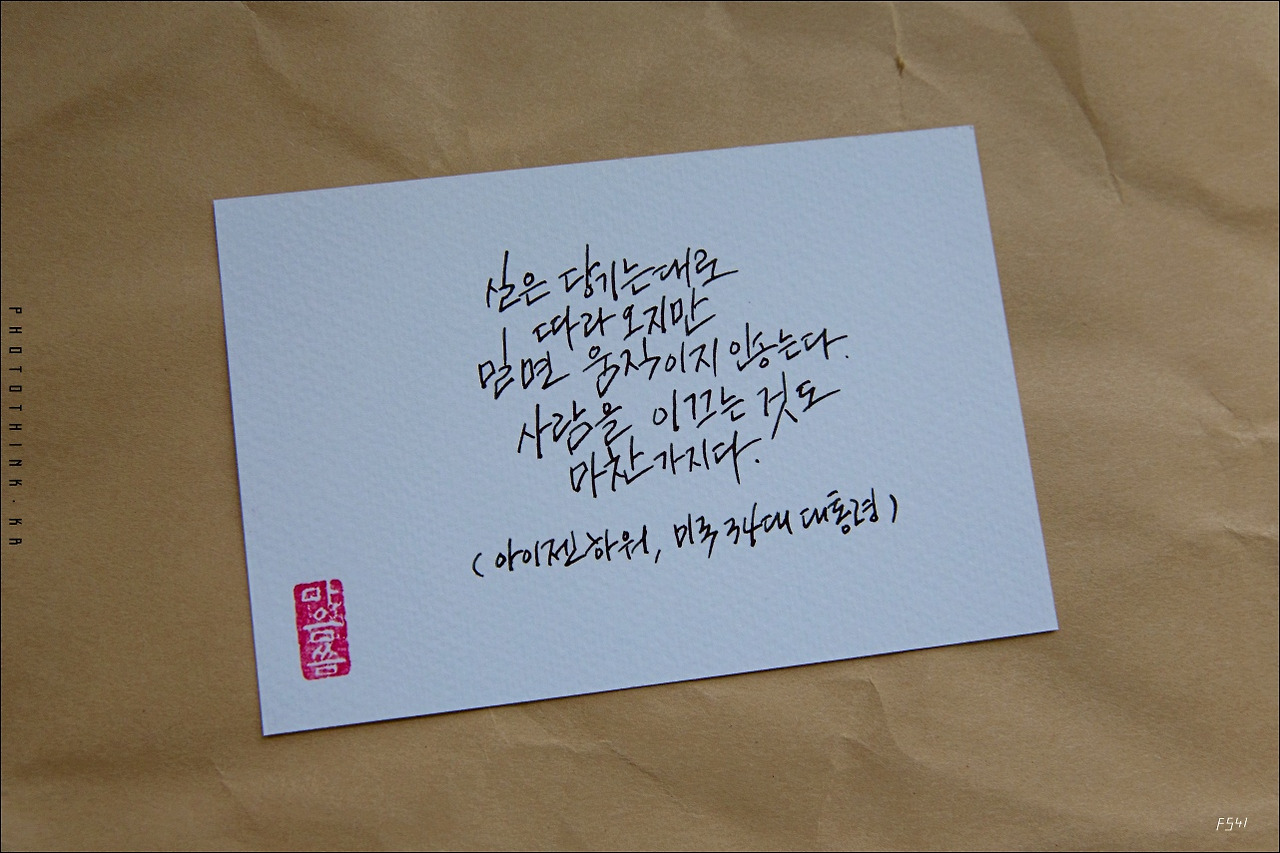 실은 당기는대로
따라 오지만
밀면 움직이지 안송는다.
사람을 이끄는 것도
마찬가지다.
(아이젠하워, 미국 34대 대통령)
PHOTOTHINK·KA
F541